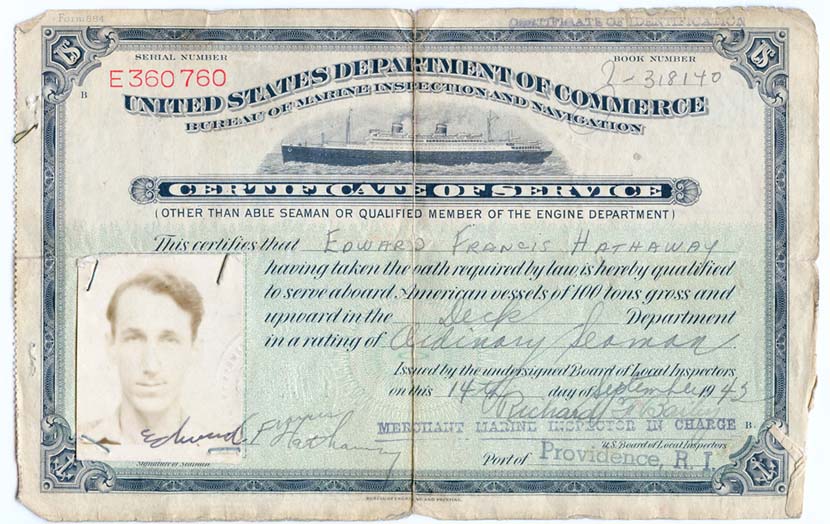 Form 884
CERTIFICATE OF IDENTIFICATION
SERIAL NUMBER
BOOK NUMBER
E360760
Z-318140
B
UNITED STATES DEPARTMENT OF COMMERCE
BUREAU OF MARINE INSPECTION AND NAVIGATION
CERTIFICATE OF SERVICE
(OTHER THAN ABLE SEAMAN OR QUALIFIED MEMBER OF THE ENGINE DEPARTMENT)
This certifies that EDWARD FRANCIS HATHAWAY
having taken the oath required by law, is hereby qualified
to serve aboard American vessels of 100 tons gross and
upward in the Deck Department
in a rating of Ordinary Seaman
Issued by the undersigned Board of Local Inspectors
on this 14th day of September 1943
Richard F.
MERCHANT MARINE INSPECTOR IN CHARGE B.
Edward Francis
Hathaway
U.S. Board of Local Inspectors
Port of Providence, R.I.
Signature of Seaman
BUREAU OF ENGRAVING AND PRINTING